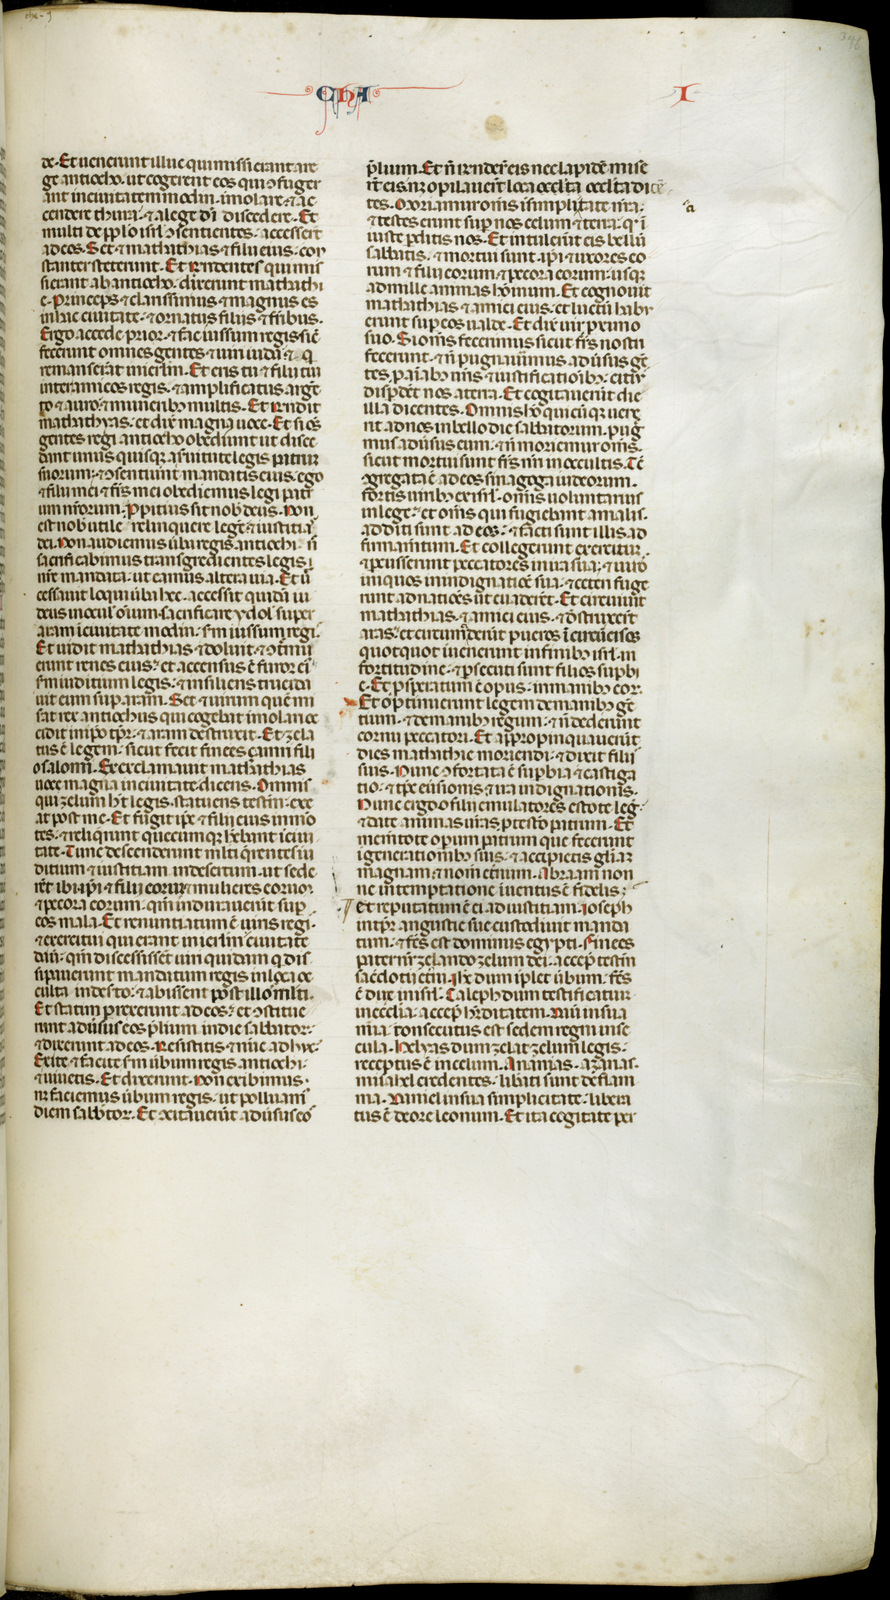 CHA I
de. Et uenerunt illuc qui missi erant a re
ge antiocho. ut cogerent eos qui ↄfuger
ant in ciuitatem modin. imolare ⁊ ac
cendere thura. ⁊ a lege dī discedere. Et
multi de pp̄lo isrl̄ ↄsentientes. accesserūt
ad eos. Set ⁊ mathathias ⁊ filii eius. con
stanter steterunt. Et rn̄dentes qui mis
si erant ab antiocho. dixerunt mathathi
e. Princeps ⁊ clarissimus ⁊ magnus es
in hac ciuitate. ⁊ ornatus filiis ⁊ fr̄ibus.
Ergo accede prior. ⁊ fac iussum regis sic̄
fecerunt omnes gentes. ⁊ uiri iuda ⁊ q̄
remanserūt in ierl̄m. Et eris tu ⁊ filii tui
inter amicos regis. ⁊ amplificatus argē
to ⁊ auro. ⁊ muneribȝ multis. Et rn̄dit
mathathyas. et dix̄ magna uoce. Et si om̄s
gentes regi antiocho obediunt ut disce
dant unus quisqȝ a seruitute legis patrum
suorum. ⁊ ↄsentiunt mandatis eius. ego
⁊ filii mei ⁊ fr̄s mei obediemus legi patr̄
um nr̄orum. Ꝓpitius sit nob̄ deus. Non
est nob̄ utile relinquere legē ⁊ iustitiā
dei. Non audiemus ūba regis antiochi. n̄
sacrificabimus transgredientes legis
nr̄e mandata. ut eamus altera uia. Et ū
cessauit loqui ūba hec. accessit quidā iu
deus in ocul̄ om̄ium sacrificare ydol̄ super
aram ī ciuitate modin. s̄m iussum regis.
Et uidit mathathias ⁊ doluit. ⁊ ↄtrmu
erunt renes eius. et accensus ē furor ei᷒
s̄m iuditium legis. ⁊ insiliens trucida
uit eum sup aram. Set ⁊ uirum quē mi
sat rex antiochus qui cogebat imolare oc
cidit in ip̄o tp̄r. ⁊ aram destruxit. Et zela
tus ē legem. sicut fecit finees zamri fili
o salomi. Et exclamauit mathathias
uoce magna in ciuitate dicens. Omnis
qui zelum h̄t legis. statuens testm̄. exe
at post me. Et fugit ip̄e ⁊ filii eius in mō
tes. ⁊ reliqrunt quecumqȝ h̄ebant ī ciui
tate. Tunc descenderunt ml̄ti q̄rentes iu
ditium ⁊ iustitiam in desertum. ut sede
rēt ibi ip̄i ⁊ filii eorum ⁊ mulieres eorum
⁊ pecora eorum. qm̄ indurauerūt sup
eos mala. Et renuntiatum ē uiris regis.
⁊ exercitui qui erant in ierl̄m ciuitate
dauid. qm̄ discessissent uiri quidam q̄ dis
sipauerunt mandatum regis in loca oc
culta in deserto. ⁊ abissent post illos ml̄ti.
Et statim prexerunt ad eos. et ↄstitue
runt aduersus eos p̄lium in die sabbator.
⁊ dixerunt ad eos. Resistitis ⁊ nūc adhuc.
Exite ⁊ facite s̄m ūbum regis antiochi.
⁊ uiuetis. Et dixerunt. Non exibimus.
nȝ faciemus ūbum regis. ut polluam᷒
diem sabb̄tor. Et ↄcitauerūt aduersus eos
p̄lium. Et n̄ rn̄der̄ eis nec lapidē mise
rūt eis. nȝ opilauerūt loca occulta dicē
tes. Moriamur om̄s ī simplicitate nr̄a.
⁊ testes erunt sup nos celum ⁊ terra. q̄ ī
iuste ꝑditis nos. Et intulerūt eis bellū
sabbatis. ⁊ mortui sunt ip̄i ⁊ uxores eo
rum ⁊ filii eorum ⁊ pecora eorum. usqȝ
ad mille animas hominum. Et cognouit
mathathias ⁊ amici eius. et luctū habu
erunt sup eos ualde. Et dix̄ uir proximo
suo. Si om̄s fecerimus sicut fr̄s nostri
fecerunt. ⁊ n̄ pugnauerimus aduersus gē
tes. ꝑ aīabȝ nr̄is ⁊ iustificatiōibȝ. citius
disꝑdēt nos a terra. Et cogitauerūt die
illa dicentes. Omnis hō quicūqȝ uene
rit ad nos in bello die sabbatorum. pug
mus aduersus eum. ⁊ n̄ moriemur om̄s.
sicut mortui sunt fr̄s nr̄i in occultis. Tc̄
ↄgregata ē ad eos sinagoga iudeorum.
fortis uiribȝ ex isrl̄. om̄is uoluntarius
in lege. et om̄s qui fugiebant a malis.
additi sunt ad eos. ⁊ facti sunt illis ad
firmamtum. Et collegerunt exercitum.
⁊ percusserunt peccatores in ira sua. ⁊ uiros
iniquos in indignatiōe sua. ⁊ ceteri fuge
runt ad natiōes ut euaderēt. Et circuiuit
mathathias. ⁊ amici eius. ⁊ destruxerūt
aras. et circumciderūt pueros ī circūcisos
quotquot inuenerunt in finibȝ isrl̄. in
fortitudine. ⁊ ꝑsecuti sunt filios supbi
e. Et ꝓsperatum ē opus. in manibȝ eor.
Et optinuerunt legem de manibȝ gē
tium. ⁊ de manibȝ regum. ⁊ n̄ dederunt
cornu peccatori. Et appropinquauerūt
dies mathathie moriendi. ⁊ dixit filiis
suis. Nunc ↄfortata ē supbia ⁊ castiga
tio. ⁊ tp̄s euersionis ⁊ ira indignationis.
Nunc ergo o filii emulatores estote legis.
⁊ date animas ur̄as. ꝑ testo patrum. Et
mem̄tote operum patrum que fecerunt
ī generationibȝ suis. ⁊ accipietis gl̄iam
magnam. ⁊ nom̄ et̄num. Abraam non
ne in temptatione īuentus ē fidelis.
et reputatum ē ei ad iustitiam. Ioseph
in tp̄r angustie sue custodiuit manda
tum. ⁊ fc̄s est dominus egypti. Finees
pater nr̄ zelando zelum dei. accep testm̄
sac̄dotii et̄ni. Ih̄c dum īplet ūbum. fc̄s
ē dux in isrl̄. Caleph dum testificatur
in ecclīa. accep h̄rditatem. Dauid in sua
mīa. consecutus est sedem regni in se
cula. Helyas dum zelat zelum legis.
receptus ē in celum. Ananias. azarias.
misahel credentes. lib̄ati sunt de flam
ma. Daniel in sua simplicitate. libera
tus ē de ore leonum. Et ita cogitate per